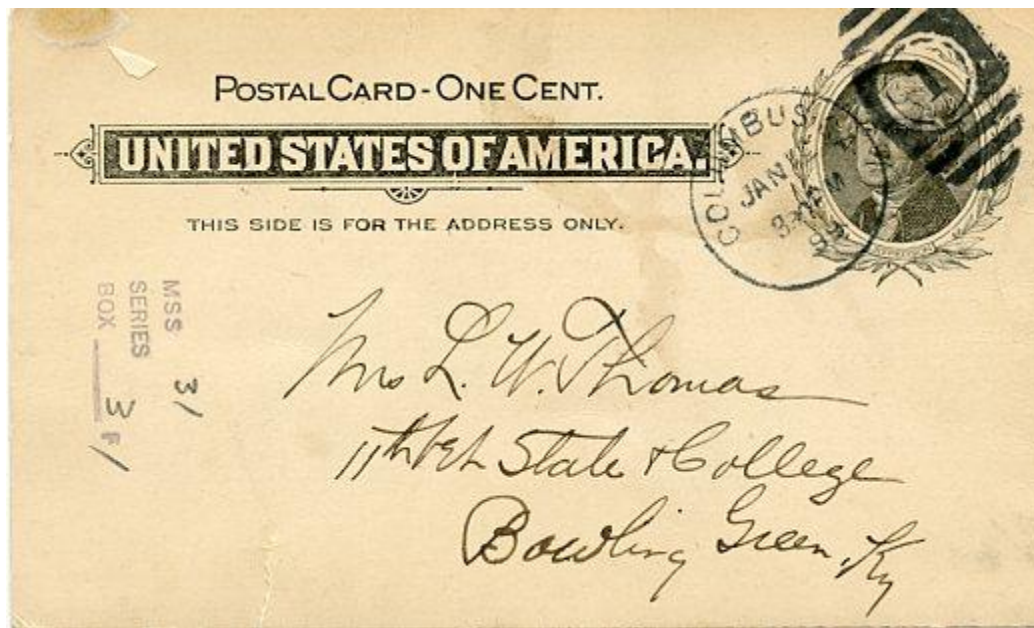 POSTAL CARD - ONE CENT.
UNITED STATES OF AMERICA.
THIS SIDE IS FOR THE ADDRESS ONLY.
COLUMBUS
JAN
MSS 31
SERIES
BOX 3 F1
Mrs L. W. Thomas
11th bet State & College
Bowling Green, Ky